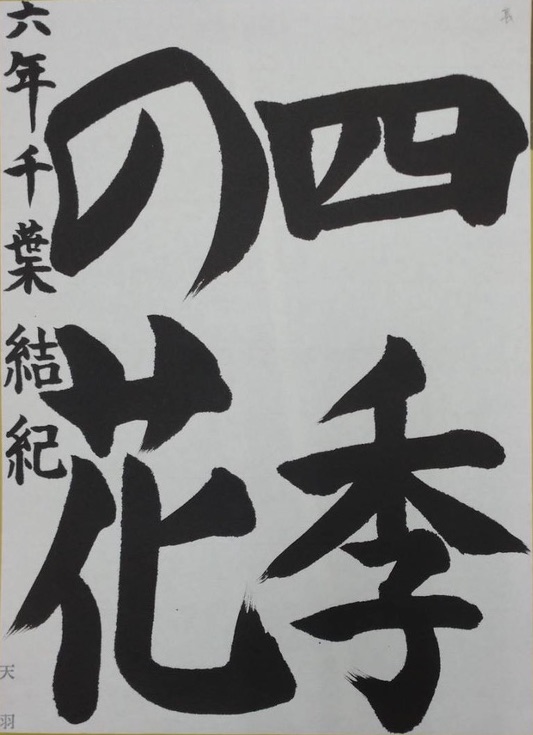 四季
の花
六年千葉結紀
天羽